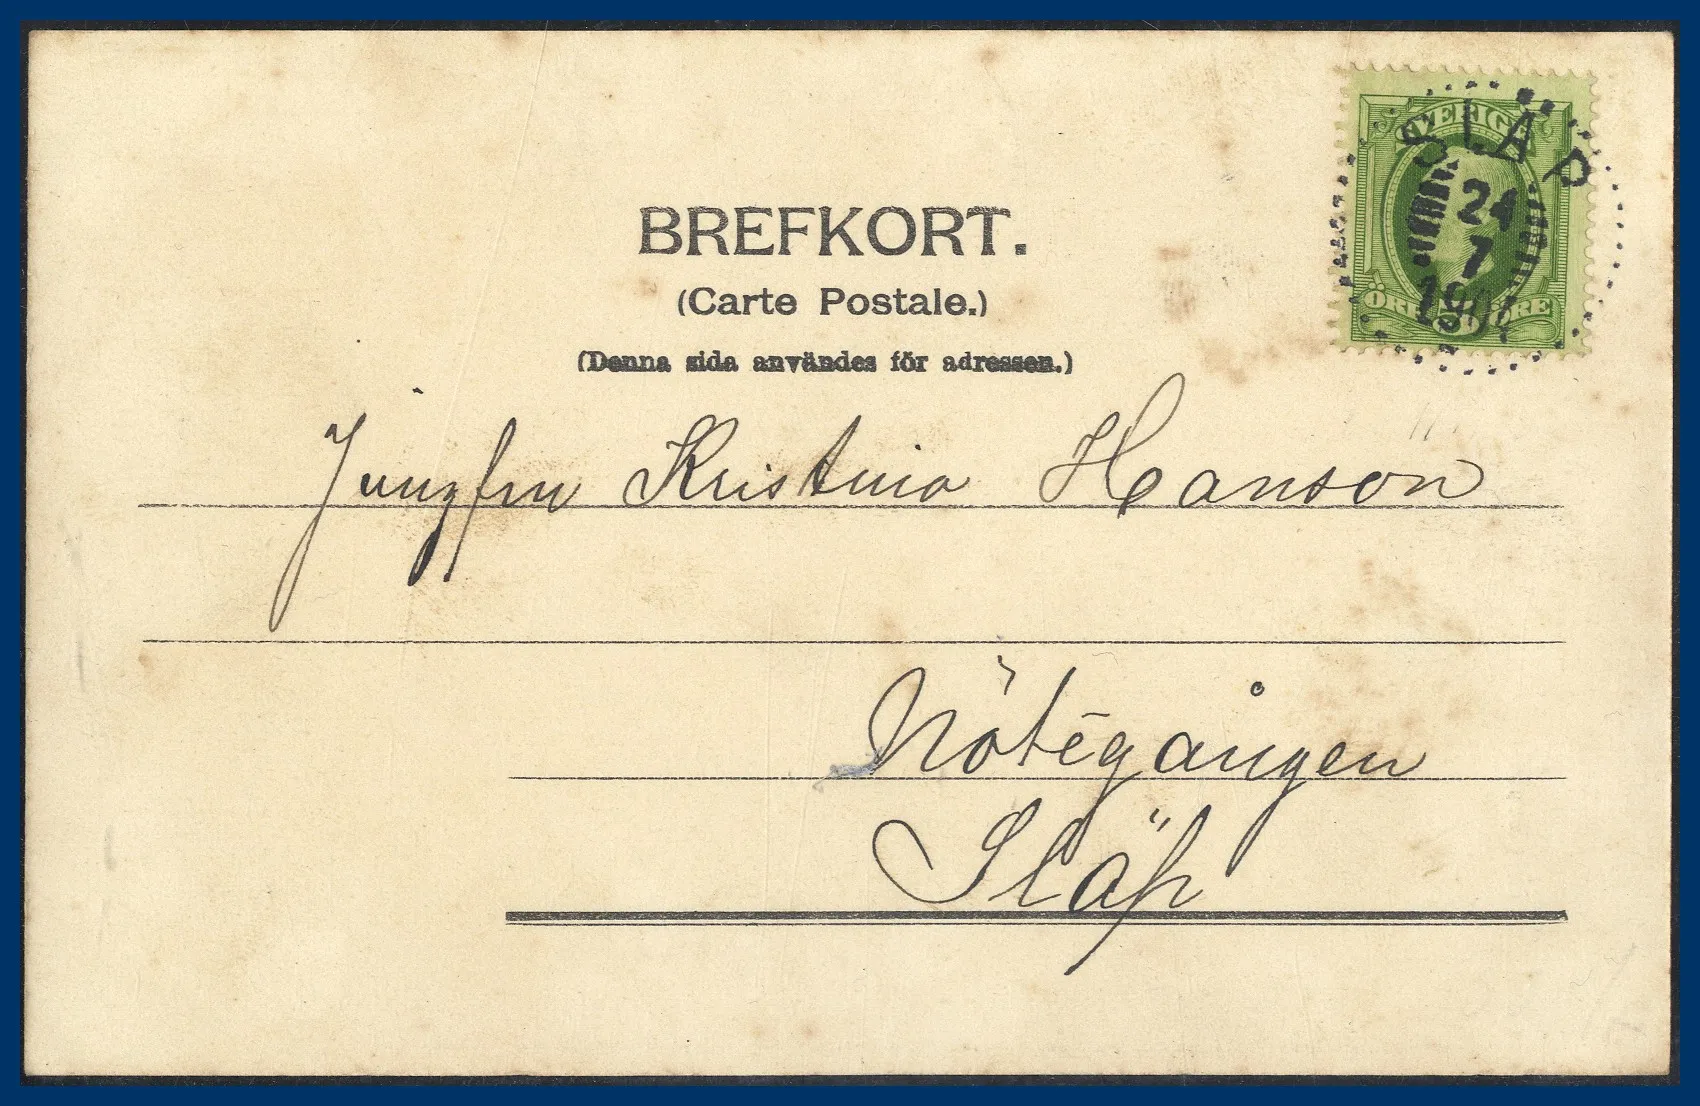 SVERIGE
SLÄP
24
7
190
ÖRE ÖRE
BREFKORT.
(Carte Postale.)
(Denna sida användes för adressen.)
Jungfru Kristina Hanson
Nötegången
Släp